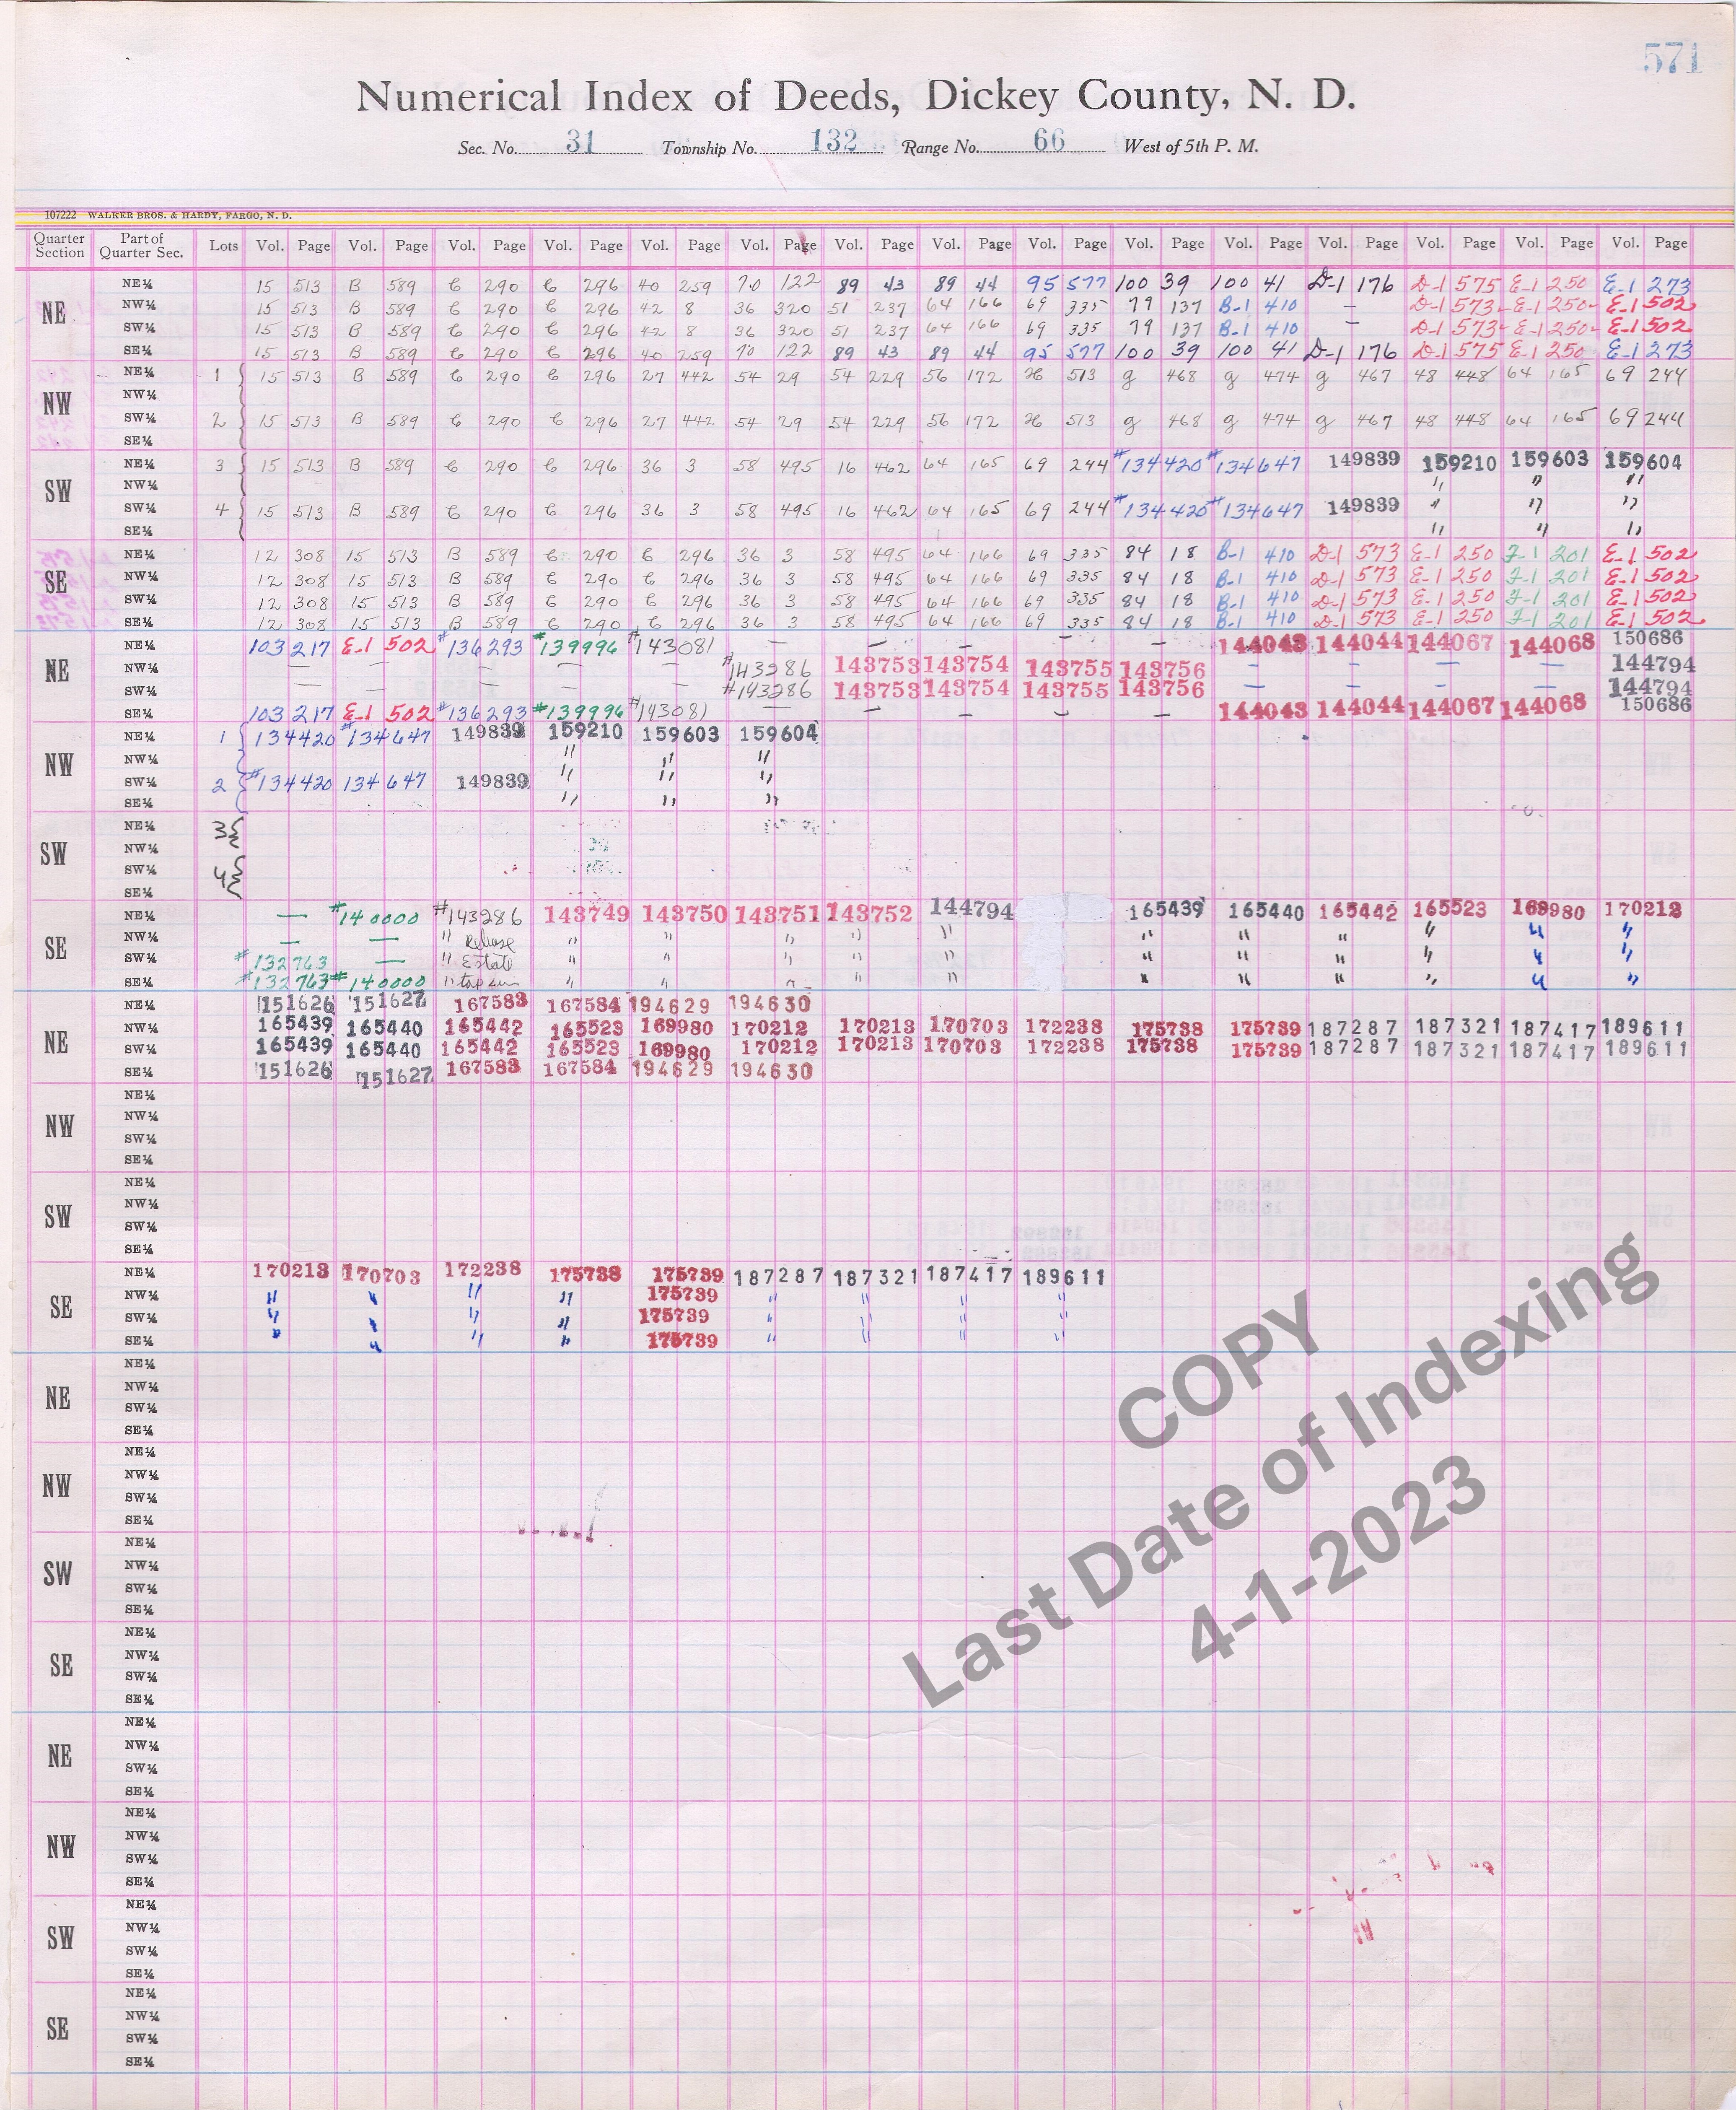 571
Numerical Index of Deeds, Dickey County, N. D.
Sec. No. 31 Township No. 132 Range No. 66 West of 5th P. M.
107222 WALKER BROS. & HARDY, FARGO, N. D.
Quarter Section Part of Quarter Sec. Lots Vol. Page Vol. Page Vol. Page Vol. Page Vol. Page Vol. Page Vol. Page Vol. Page Vol. Page Vol. Page Vol. Page Vol. Page Vol. Page Vol. Page Vol. Page
NE
NE¼ 15 513 B 589 C 290 C 296 40 259 70 122 89 43 89 44 95 577 100 39 100 41 D-1 176 D-1 575 E-1 250 E-1 273
NW¼ 15 513 B 589 C 290 C 296 42 8 36 320 51 237 64 166 69 335 79 137 B-1 410 — D-1 573 E-1 250 E-1 502
SW¼ 15 513 B 589 C 290 C 296 42 8 36 320 51 237 64 166 69 335 79 137 B-1 410 — D-1 573 E-1 250 E-1 502
SE¼ 15 513 B 589 C 290 C 296 40 259 70 122 89 43 89 44 95 577 100 39 100 41 D-1 176 D-1 575 E-1 250 E-1 273
NW
NE¼ 1 15 513 B 589 C 290 C 296 27 442 54 29 54 229 56 172 H 513 g 468 g 474 g 467 48 448 64 165 69 244
NW¼
SW¼ 2 15 513 B 589 C 290 C 296 27 442 54 29 54 229 56 172 H 513 g 468 g 474 g 467 48 448 64 165 69 244
SE¼
SW
NE¼ 3 15 513 B 589 C 290 C 296 36 3 58 495 16 462 64 165 69 244 #134420 #134647 149839 159210 159603 159604
NW¼ " " "
SW¼ 4 15 513 B 589 C 290 C 296 36 3 58 495 16 462 64 165 69 244 #134420 #134647 149839 " " "
SE¼ " " "
SE
NE¼ 12 308 15 513 B 589 C 290 C 296 36 3 58 495 64 166 69 335 84 18 B-1 410 D-1 573 E-1 250 F-1 201 E-1 502
NW¼ 12 308 15 513 B 589 C 290 C 296 36 3 58 495 64 166 69 335 84 18 B-1 410 D-1 573 E-1 250 F-1 201 E-1 502
SW¼ 12 308 15 513 B 589 C 290 C 296 36 3 58 495 64 166 69 335 84 18 B-1 410 D-1 573 E-1 250 F-1 201 E-1 502
SE¼ 12 308 15 513 B 589 C 290 C 296 36 3 58 495 64 166 69 335 84 18 B-1 410 D-1 573 E-1 250 F-1 201 E-1 502
NE
NE¼ 103 217 E-1 502 #136293 #139996 #143081 — — — — — 144043 144044 144067 144068 150686
NW¼ — — — — — #143286 143753 143754 143755 143756 — — — — 144794
SW¼ — — — — — #143286 143753 143754 143755 143756 — — — — 144794
SE¼ 103 217 E-1 502 #136293 #139996 #143081 — — — — — 144043 144044 144067 144068 150686
NW
NE¼ 1 134420 #134647 149839 159210 159603 159604
NW¼ " " "
SW¼ 2 #134420 134647 149839 " " "
SE¼ " " "
SW
NE¼ 3
NW¼
SW¼ 4
SE¼
SE
NE¼ — #140000 #143286 143749 143750 143751 143752 144794 165439 165440 165442 165523 169980 170212
NW¼ — — " Release " " " " " " " " " " "
SW¼ #132763 — " Estate " " " " " " " " " " "
SE¼ #132763 #140000 " " " " " " " " " " " "
NE
NE¼ 151626 151627 167583 167584 194629 194630
NW¼ 165439 165440 165442 165523 169980 170212 170213 170703 172238 175738 175739 187287 187321 187417 189611
SW¼ 165439 165440 165442 165523 169980 170212 170213 170703 172238 175738 175739 187287 187321 187417 189611
SE¼ 151626 151627 167583 167584 194629 194630
NW
NE¼
NW¼
SW¼
SE¼
SW
NE¼
NW¼
SW¼
SE¼
SE
NE¼ 170213 170703 172238 175738 175739 187287 187321 187417 189611
NW¼ " " " " 175739 " " " "
SW¼ " " " " 175739 " " " "
SE¼ " " " " 175739 " " " "
NE
NE¼
NW¼
SW¼
SE¼
NW
NE¼
NW¼
SW¼
SE¼
SW
NE¼
NW¼
SW¼
SE¼
SE
NE¼
NW¼
SW¼
SE¼
NE
NE¼
NW¼
SW¼
SE¼
NW
NE¼
NW¼
SW¼
SE¼
SW
NE¼
NW¼
SW¼
SE¼
SE
NE¼
NW¼
SW¼
SE¼
COPY
Last Date of Indexing
4-1-2023